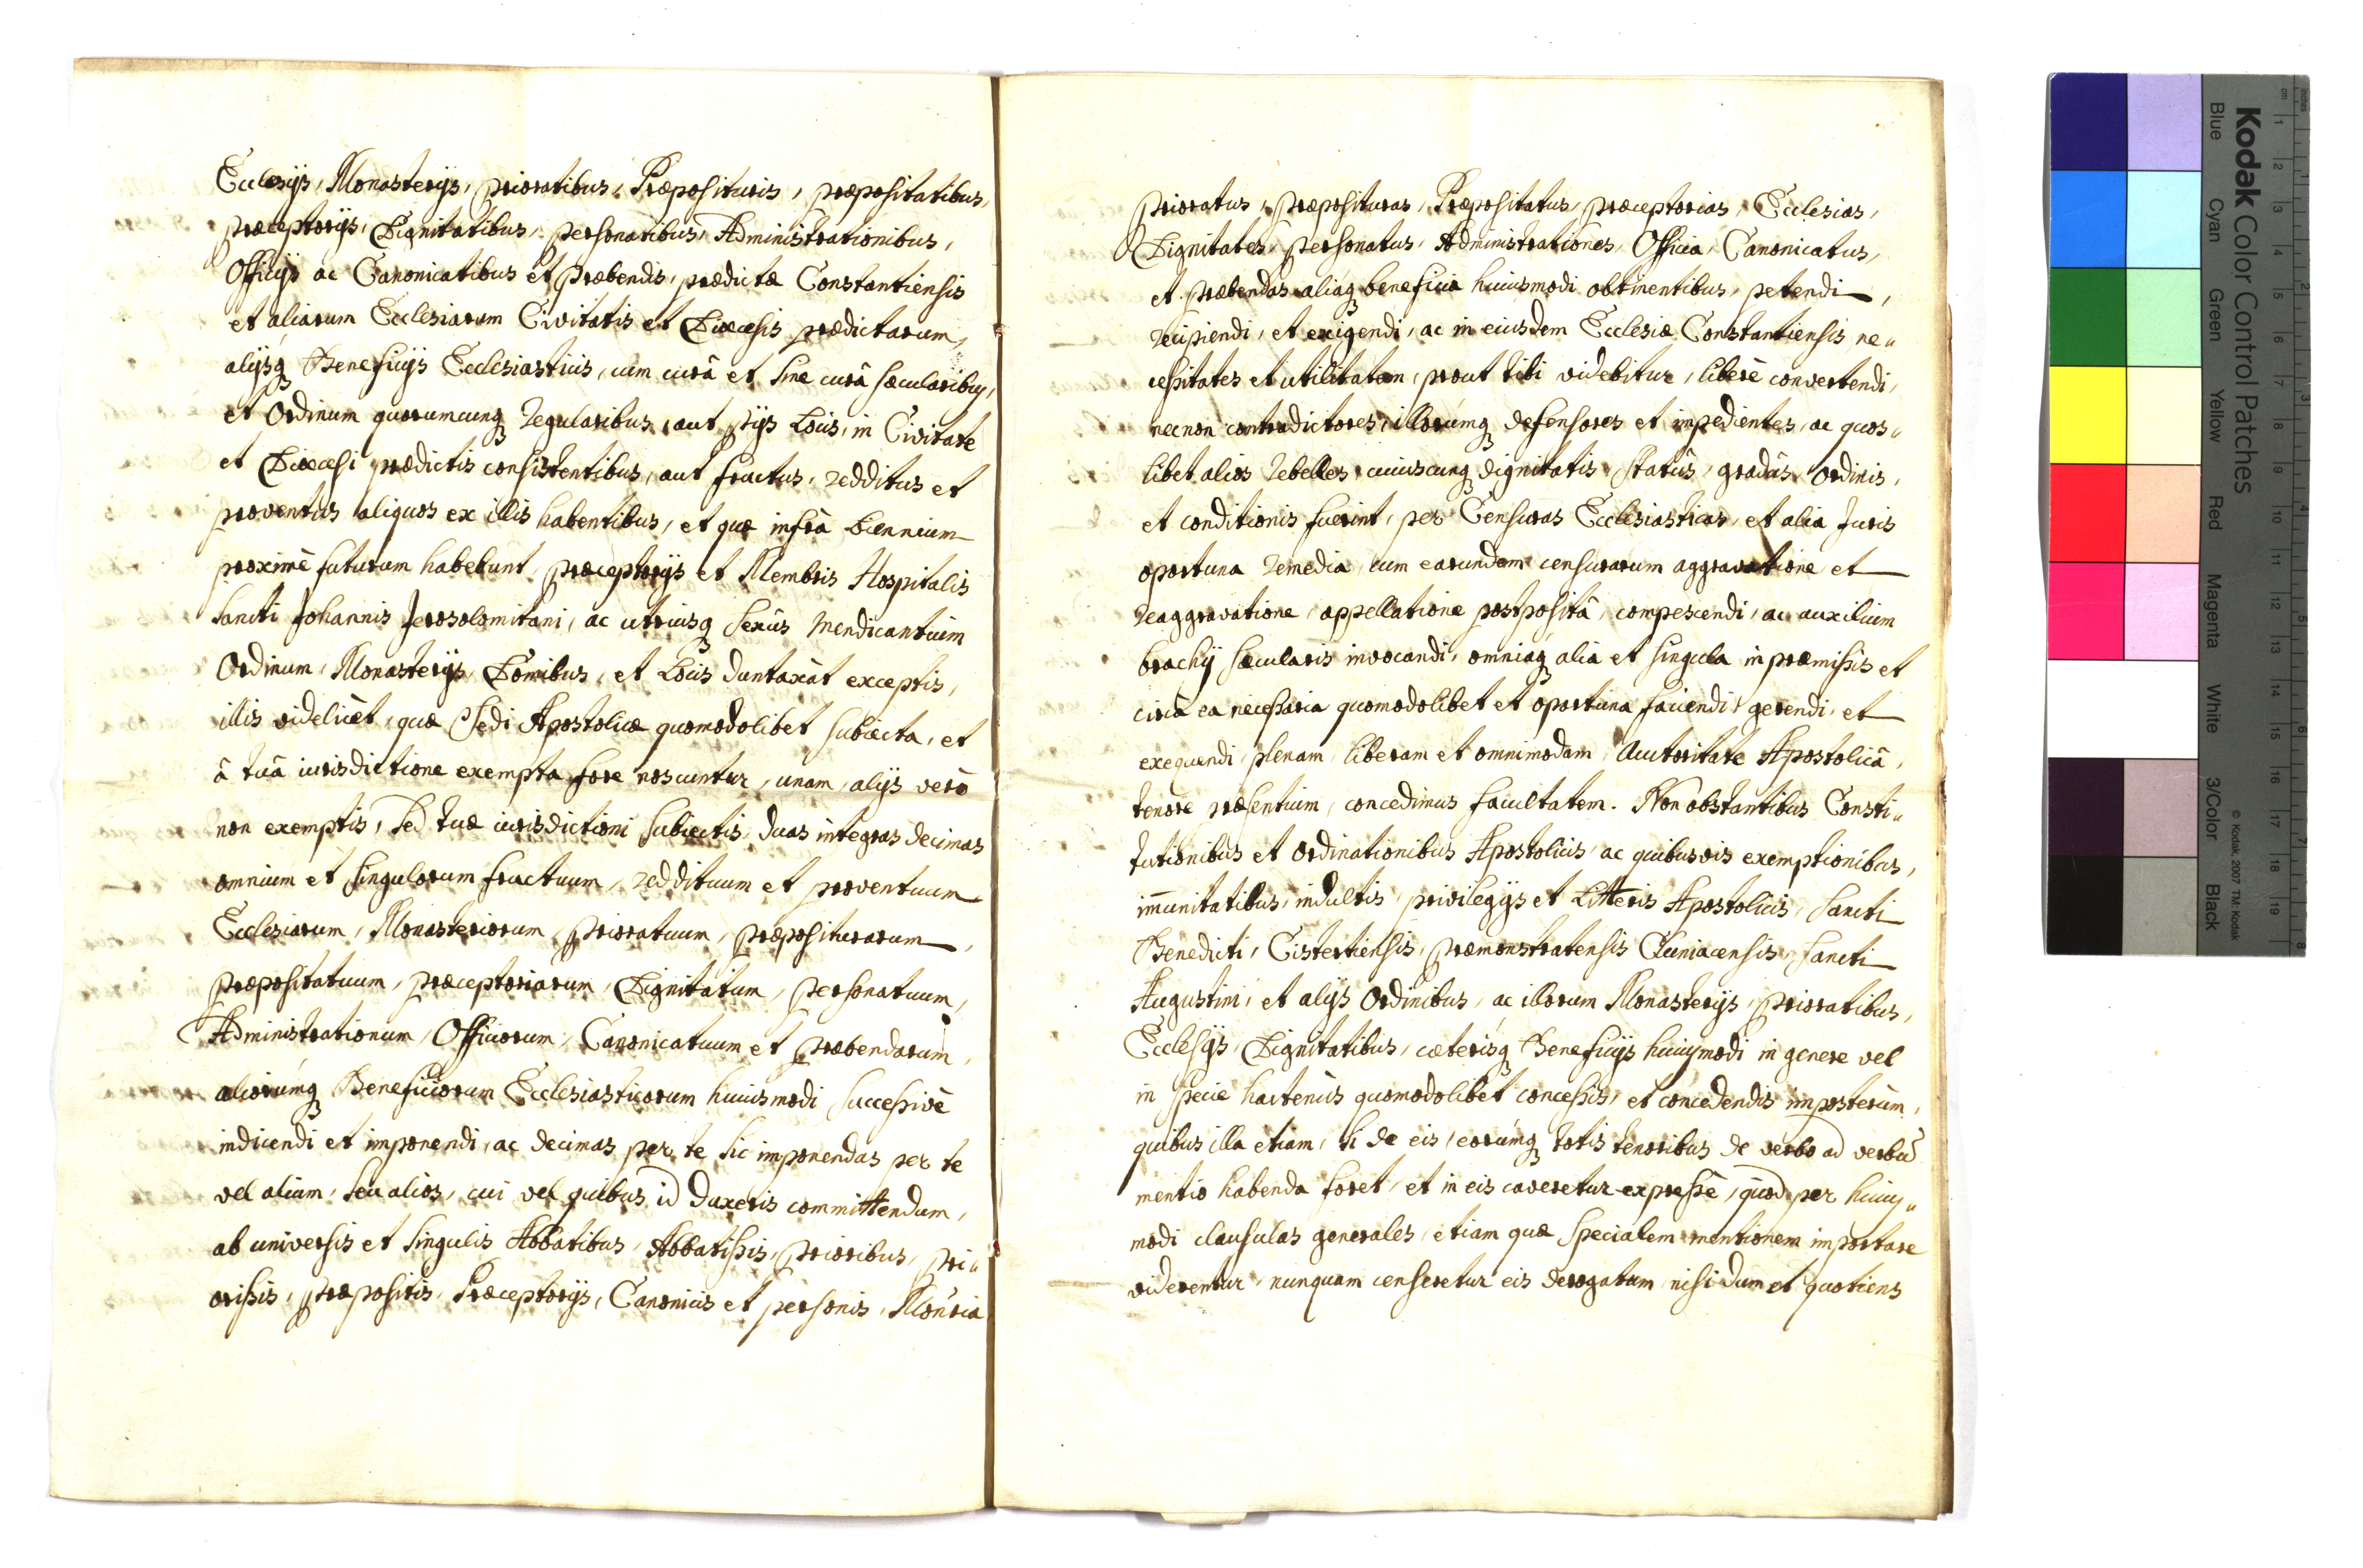 Ecclesijs, Monasterijs, prioratibus, Præposituris, præpositatibus,
præceptorijs, Dignitatibus, personatibus, Administrationibus,
Officijs ac Canonicatibus et præbendis, prædictæ Constantiensis
et aliarum Ecclesiarum Civitatis et Diœcesis prædictarum,
alijsq Beneficijs Ecclesiasticis, cum curâ et sine curâ sæcularibus,
et Ordinum quorumcunq regularibus, aut pijs Locis, in Civitate
et Diœcesi prædictis consistentibus, aut fructus, redditus et
proventus aliquos ex illis habentibus, et quæ infrà biennium
proximè futurum habebunt, præceptorijs et Membris Hospitalis
Sancti Johannis Jerosolomitani, ac utriusq sexûs Mendicantium
Ordinum, Monasterijs, Domibus, et Locis duntaxàt exceptis,
illis videlicèt, quæ Sedi Apostolicæ quomodolibet subiecta, et
â tuâ iurisdictione exempta fore noscuntur, unam, alijs verò
non exemptis, sed tuæ iurisdictioni subiectis, duas integras decimas
omnium et singulorum fructuum, reddituum et proventuum
Ecclesiarum, Monasteriorum, prioratuum, præpositurarum,
præpositatuum, præceptoriarum, Dignitatum, personatuum,
Administrationum, Officiorum, Canonicatuum et præbendarum,
aliorúmq Beneficiorum Ecclesiasticorum huiusmodi successivè
indicendi et imponendi, ac decimas per te sic imponendas per te
vel alium, seu alios, cui vel quibus id duxeris committendum,
ab universis et singulis Abbatibus, Abbatissis, prioribus, pri„
orissis, præpositis, Præceptorijs, Canonicis et personis, Mon̄ria
prioratus, præposituras, Præpositatus, præceptorias, Ecclesias,
Dignitates, personatus, Administrationes, Officia, Canonicatus,
et præbendas aliáq beneficia huiusmodi obtinentibus, petendi,
recipiendi, et exigendi, ac in eiusdem Ecclesiæ Constantiensis ne„
cessitates et utilitatem, prout tibi videbitur, liberè convertendi,
necnon contradictores, illorúmq defensores et impedientes, ac quos„
libet alios rebelles, cuiuscunq dignitatis, statûs, gradûs, Ordinis,
et conditionis fuerint, per Censuras Ecclesiasticas, et alia Juris
oportuna remedia, cum earundem censurarum aggravatione, et
reaggravatione, appellatione postpositâ, compescendi, ac auxilium
brachij sæcularis invocandi, omniáq alia et singula in præmissis et
circà ea necessaria quomodolibet et oportuna faciendi, gerendi, et
exequendi, plenam, liberam et omnimodam, Auctoritate Apostolicâ,
tenore præsentium, concedimus facultatem. Non obstantibus Consti„
tutionibus et Ordinationibus Apostolicis, ac quibusvis exemptionibus,
im̄unitatibus, indultis, privilegijs et Litteris Apostolicis, Sancti
Benedicti, Cistertiensis, præmonstratensis, Cluniacensis, Sancti
Augustini, et alijs Ordinibus, ac illorum Monasterijs, prioratibus,
Ecclesijs, Dignitatibus, cæterisq Beneficijs huiusmodi in genere vel
in specie hactenùs quomodolibet concessis, et concedendis imposterùm,
quibus illa etiam, si de eis, eorúmq totis tenoribus de verbo ad verbū
mentio habenda foret, et in eis caveretur expressè, quod per huius„
modi clausulas generales, etiam quæ specialem mentionem importare
viderentur, nunquam censeretur eis derogatum, nisi dum et quotiens
Kodak Color Control Patches
Blue Cyan Green Yellow Red Magenta White 3/Color Black
© Kodak, 2007 TM: Kodak
inches 1 2 3 4 5 6 7 8
cm 1 2 3 4 5 6 7 8 9 10 11 12 13 14 15 16 17 18 19